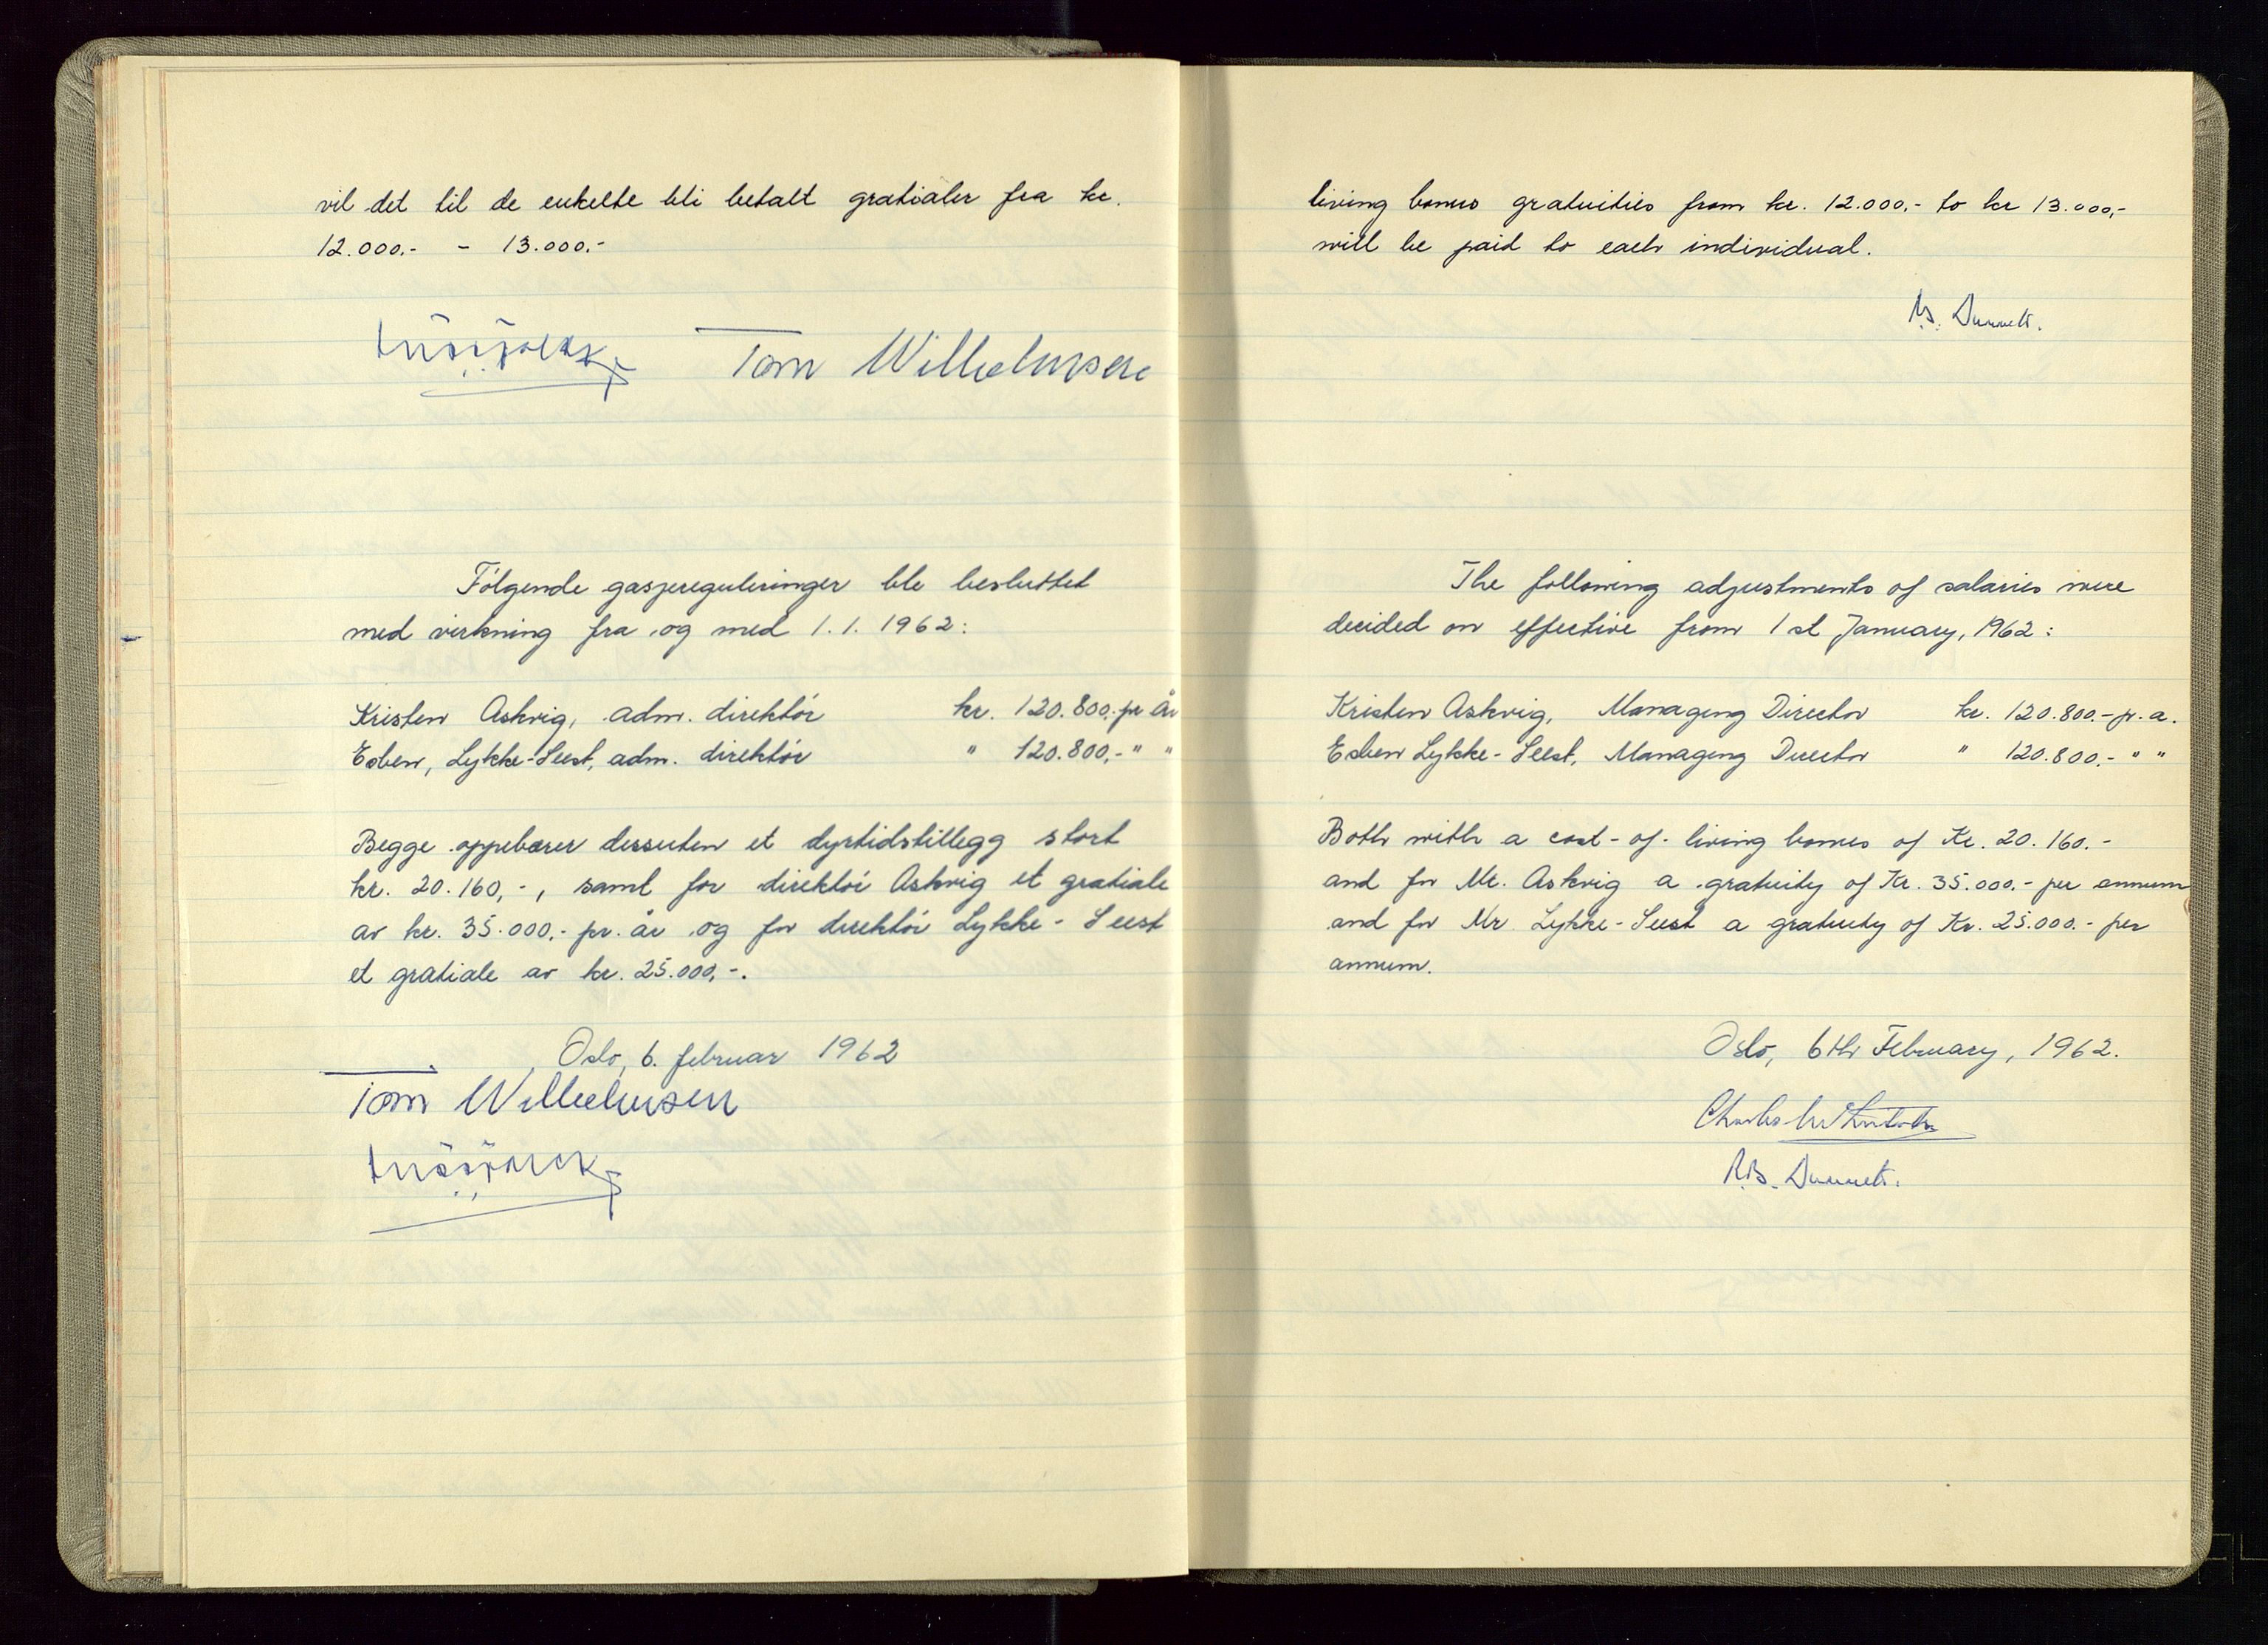 vil det til de enkelte bli betalt gratialer fra kr.
12.000.- - 13.000.-
Tom Wilhelmsen
Følgende gasjereguleringer ble besluttet
med virkning fra og med 1.1. 1962:
Kristen Askvig, adm. direktør kr. 120.800.- pr år
Esben, Lykke-Seest, adm. direktør " 120.800,- " "
Begge oppebærer dessuten et dyrtidstillegg stort
kr. 20.160,-, samt for direktør Askvig et gratiale
av kr. 35.000,- pr. år og for direktør Lykke-Seest
et gratiale av kr. 25.000,-.
Oslo, 6. februar 1962
Tom Wilhelmsen
living bonus gratuities from kr. 12.000,- to kr 13.000,-
will be paid to each individual.
The following adjustments of salaries were
decided on effective from 1st January, 1962:
Kristen Askvig, Managing Director kr. 120.800.- p.a.
Esben Lykke-Seest, Managing Director " 120.800.- " "
Both with a cost-of-living bonus of Kr. 20.160.-
and for Mr. Askvig a gratuity of Kr. 35.000.- per annum
and for Mr. Lykke-Seest a gratuity of Kr. 25.000.- per
annum.
Oslo, 6th February, 1962.
Charles